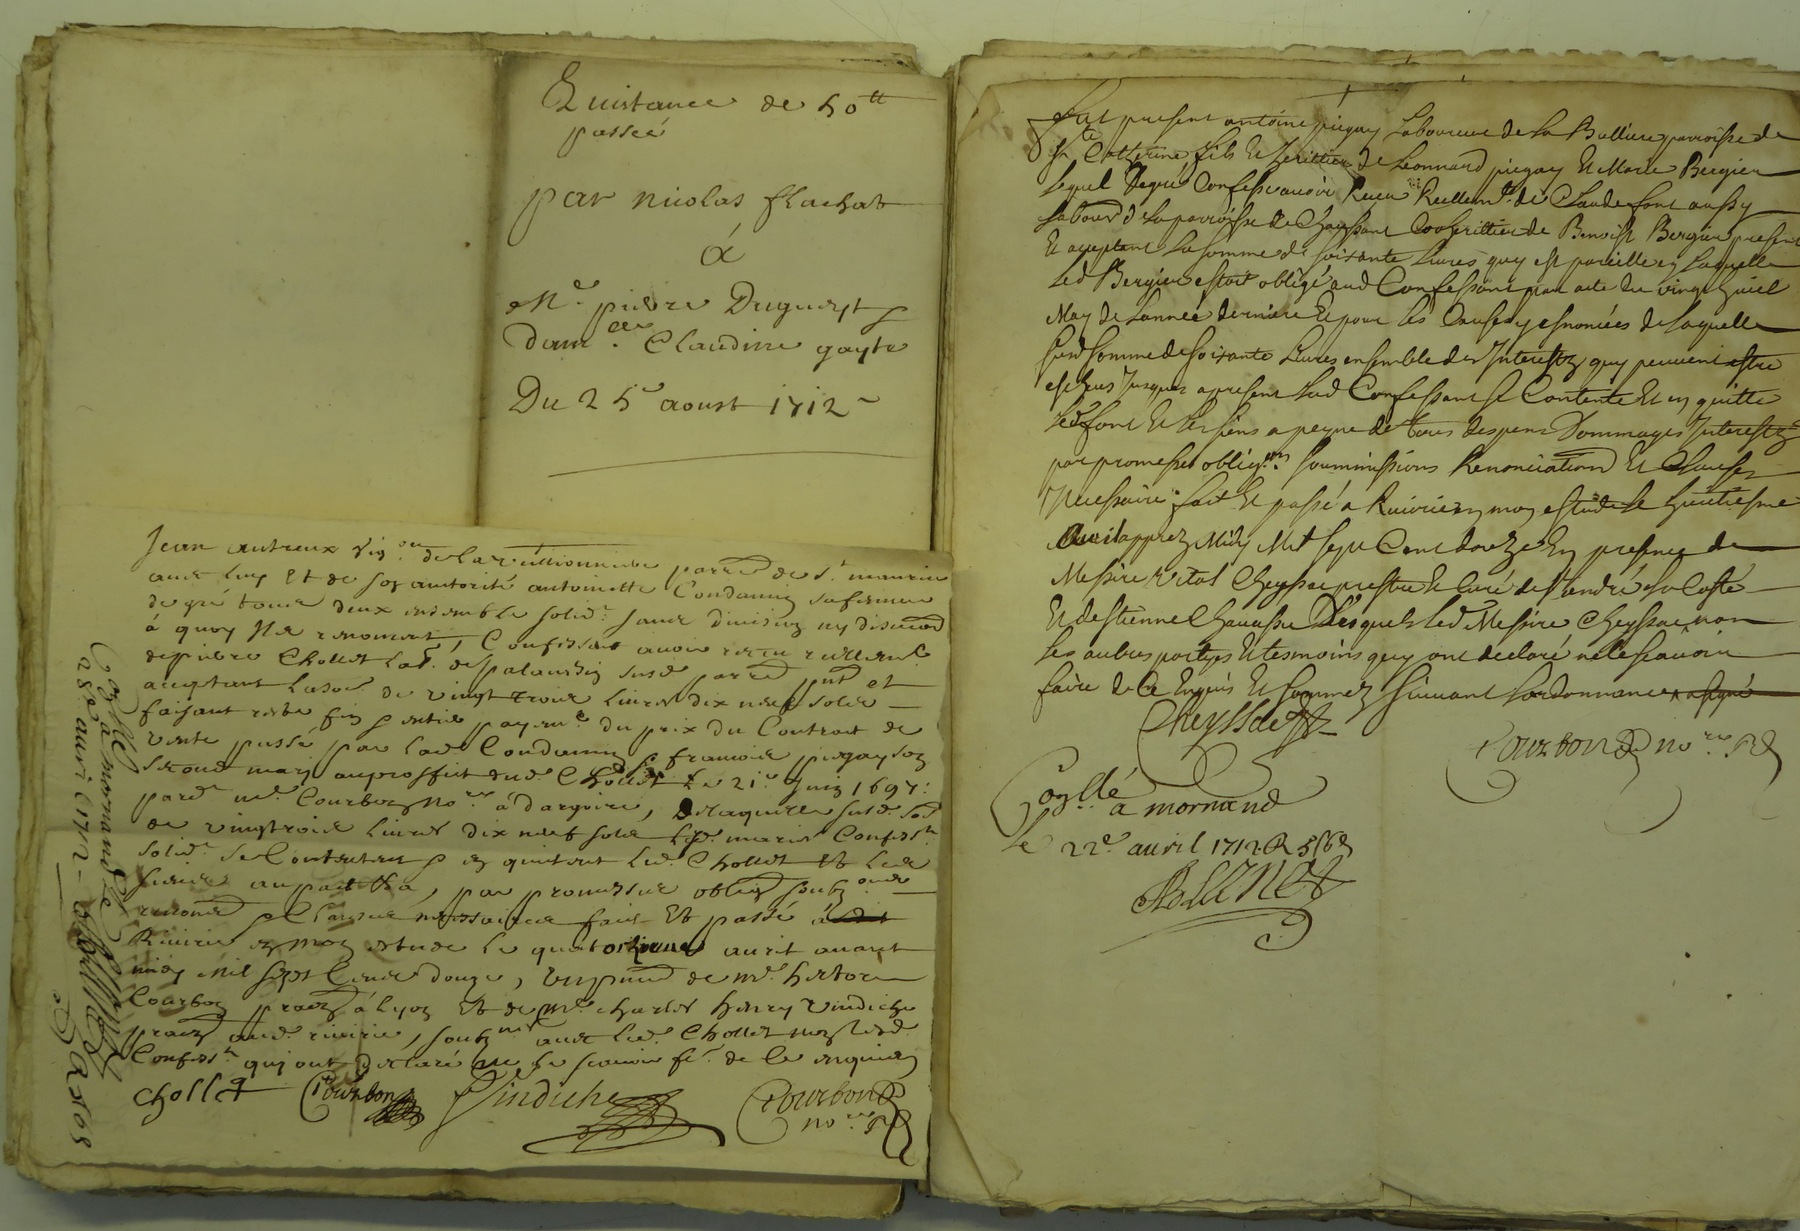 Quittance de 50tt
passée
par nicolas flachat
à
Me pierre Dugueyt
damlle Claudine gayte
Du 25e aoust 1712
Jean autreux vig.on de la parr.e de St maurice
avec luy et de son autorité antoinette Condamin sa femme
de gré tous deux ensemble solid.t sans division ny discution
à quoy Ils renoncent, Confessent avoir receu reellem.t
de pierre Chollet lab.r de susd. parr.e pnt et
acceptant la so.e de vingt trois livres dix neuf sols
faisant reste fin p entier payem.t du prix du Contract de
vente passé par lad. Condamin p francois piegay son
second mary au proffict dud. Chollet Le 21.e Juin 1697:
pard. me. Courbon no.re à dargoire, de laquelle susd. so.e
de vingtrois livres dix neuf sols lesd. mariés Confess.ts
solid.t se Contentent p en quittent led. Chollet et les
siens, par promesses oblig soubz.ons
renonc.
Clauses necessaires fait Et passé à
Riverie en mon estude le quatorzieme avril avant
midy mil sept Cents douze, En pnce de me. hector
Courbon à Lyon Et de me. charles henry Vindiche
aud. riverie, soubz.nés avec led. Chollet non lesd.
Confess.ts qui ont declaré ne le scavoir fe. de Ce enquis
chollet Courbon Vindiche Courbon
no.re R
Con.llé à mornand le
28e avril 1712
Fut present antoine piegay Laboureur de La Bulliere parroisse de
Ste Catherine fils Et heritier de Leonnard piegay Et Marie Bergier
Lequel de gre Confesse avoir Receu Reellem.t de Claude font aussy
Labour.r de la parroisse de Chaussant Cooheritier de Benoist Bergier present
Et acceptant La somme de soixante Livres quy est pareille en laquelle
Led Bergier estoit obligé aud Confessant par acte du vingt huict
May de Lannée derniere Et pour les Causes y enoncées de laquelle
susd somme de soixante Livres ensemble des Interestz quy peuvent estre
escheus Jusques a present Led Confessant se Contente Et en quitte
Led font Et les siens a peyne de tous despens Dommages Interestz
par promesses oblig.ons soummissions Renonciations Et Clauses
Necessaires fait Et passé a Riverie en mon estude le huictiesme
Avril apprez Midy Mil Sept Cent douze En presence de
Messire Vital Cheyssac prestre Et Curé de St andré la Coste
Et destienne Chavassu Desquels led Messire Cheyssac non
Les autres partyes Et tesmoins quy ont declaré ne le scavoir
faire de Ce Enquis Et sommez suivant Lordonnance
Cheyssac
Courbon no.re R
Con.llé
à mornand
le 22e avril 1712